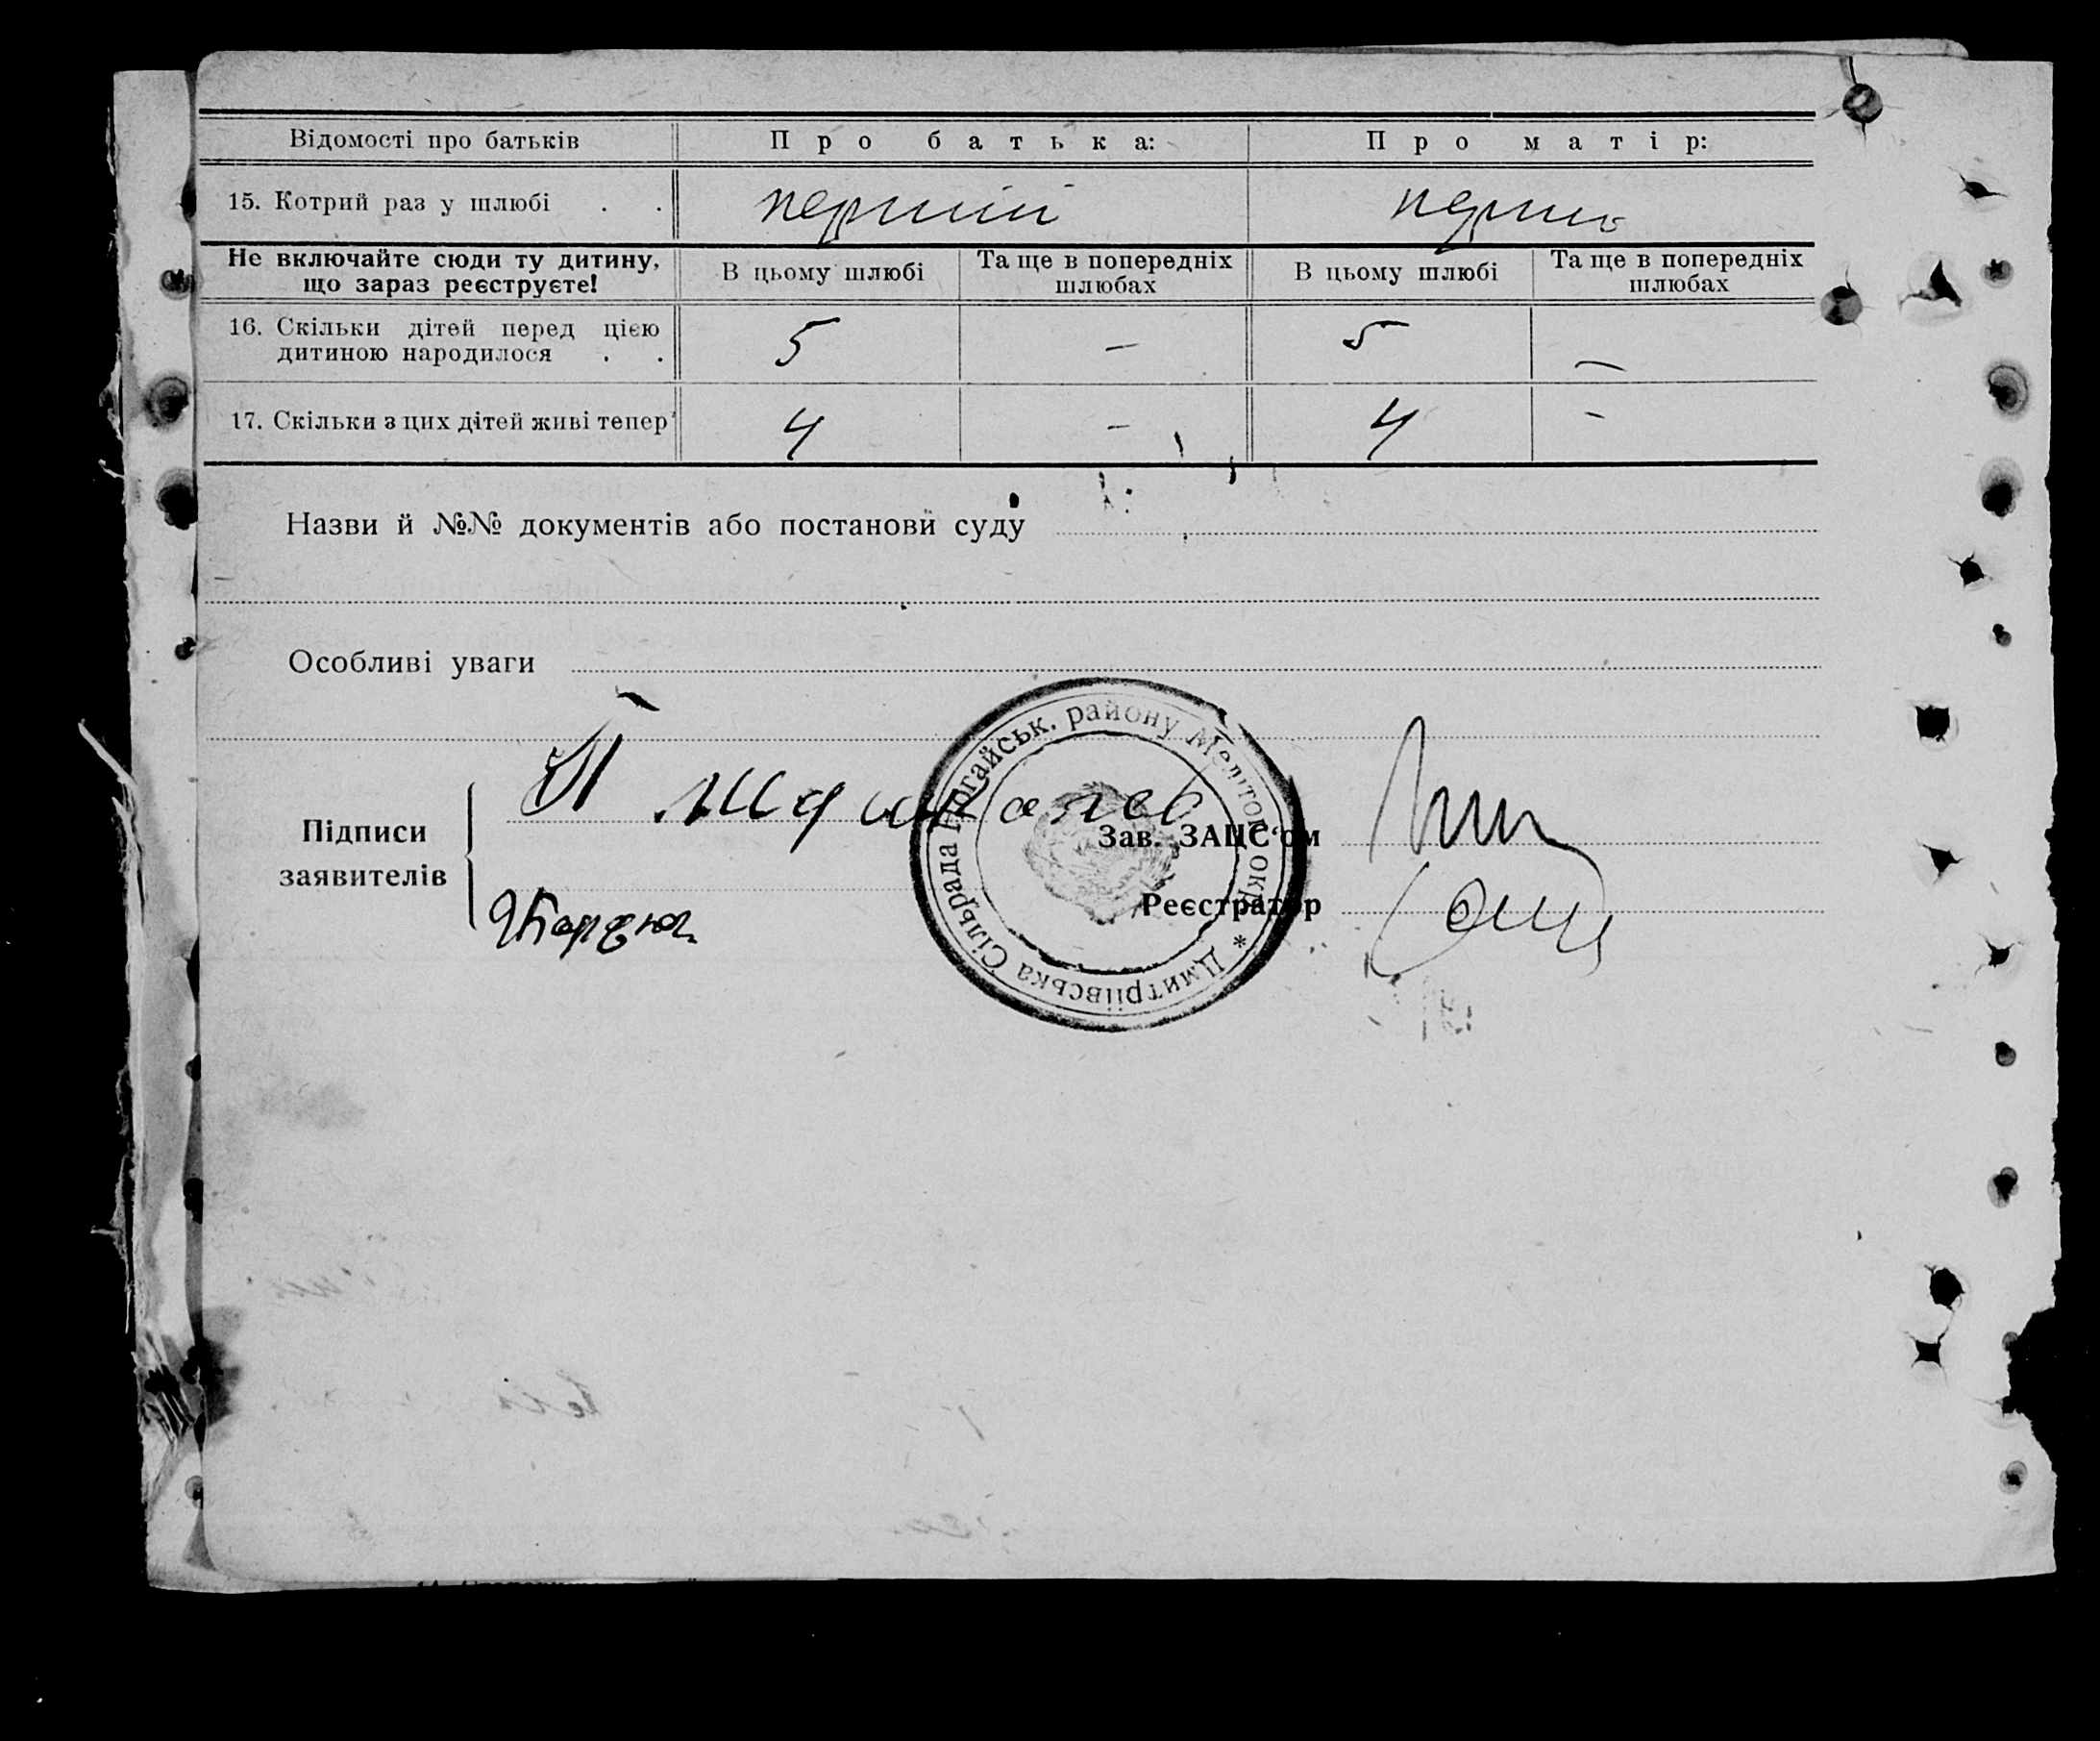 Відомості про батьків Про батька: Про матір:
15. Котрий раз у шлюбі . . перший перша
Не включайте сюди ту дитину, що зараз реєструєте! В цьому шлюбі Та ще в попередніх шлюбах В цьому шлюбі Та ще в попередніх шлюбах
16. Скільки дітей перед цією
дитиною народилося . . 5 — 5 —
17. Скільки з цих дітей живі тепер 4 - 4 -
Назви й №№ документів або постанови суду
Особливі уваги
Підписи
заявителів
Зав. ЗАЦС‘ом
Реєстратор
Дмитріївська Сільрада Ногайськ. району Мелітоп. окр. *